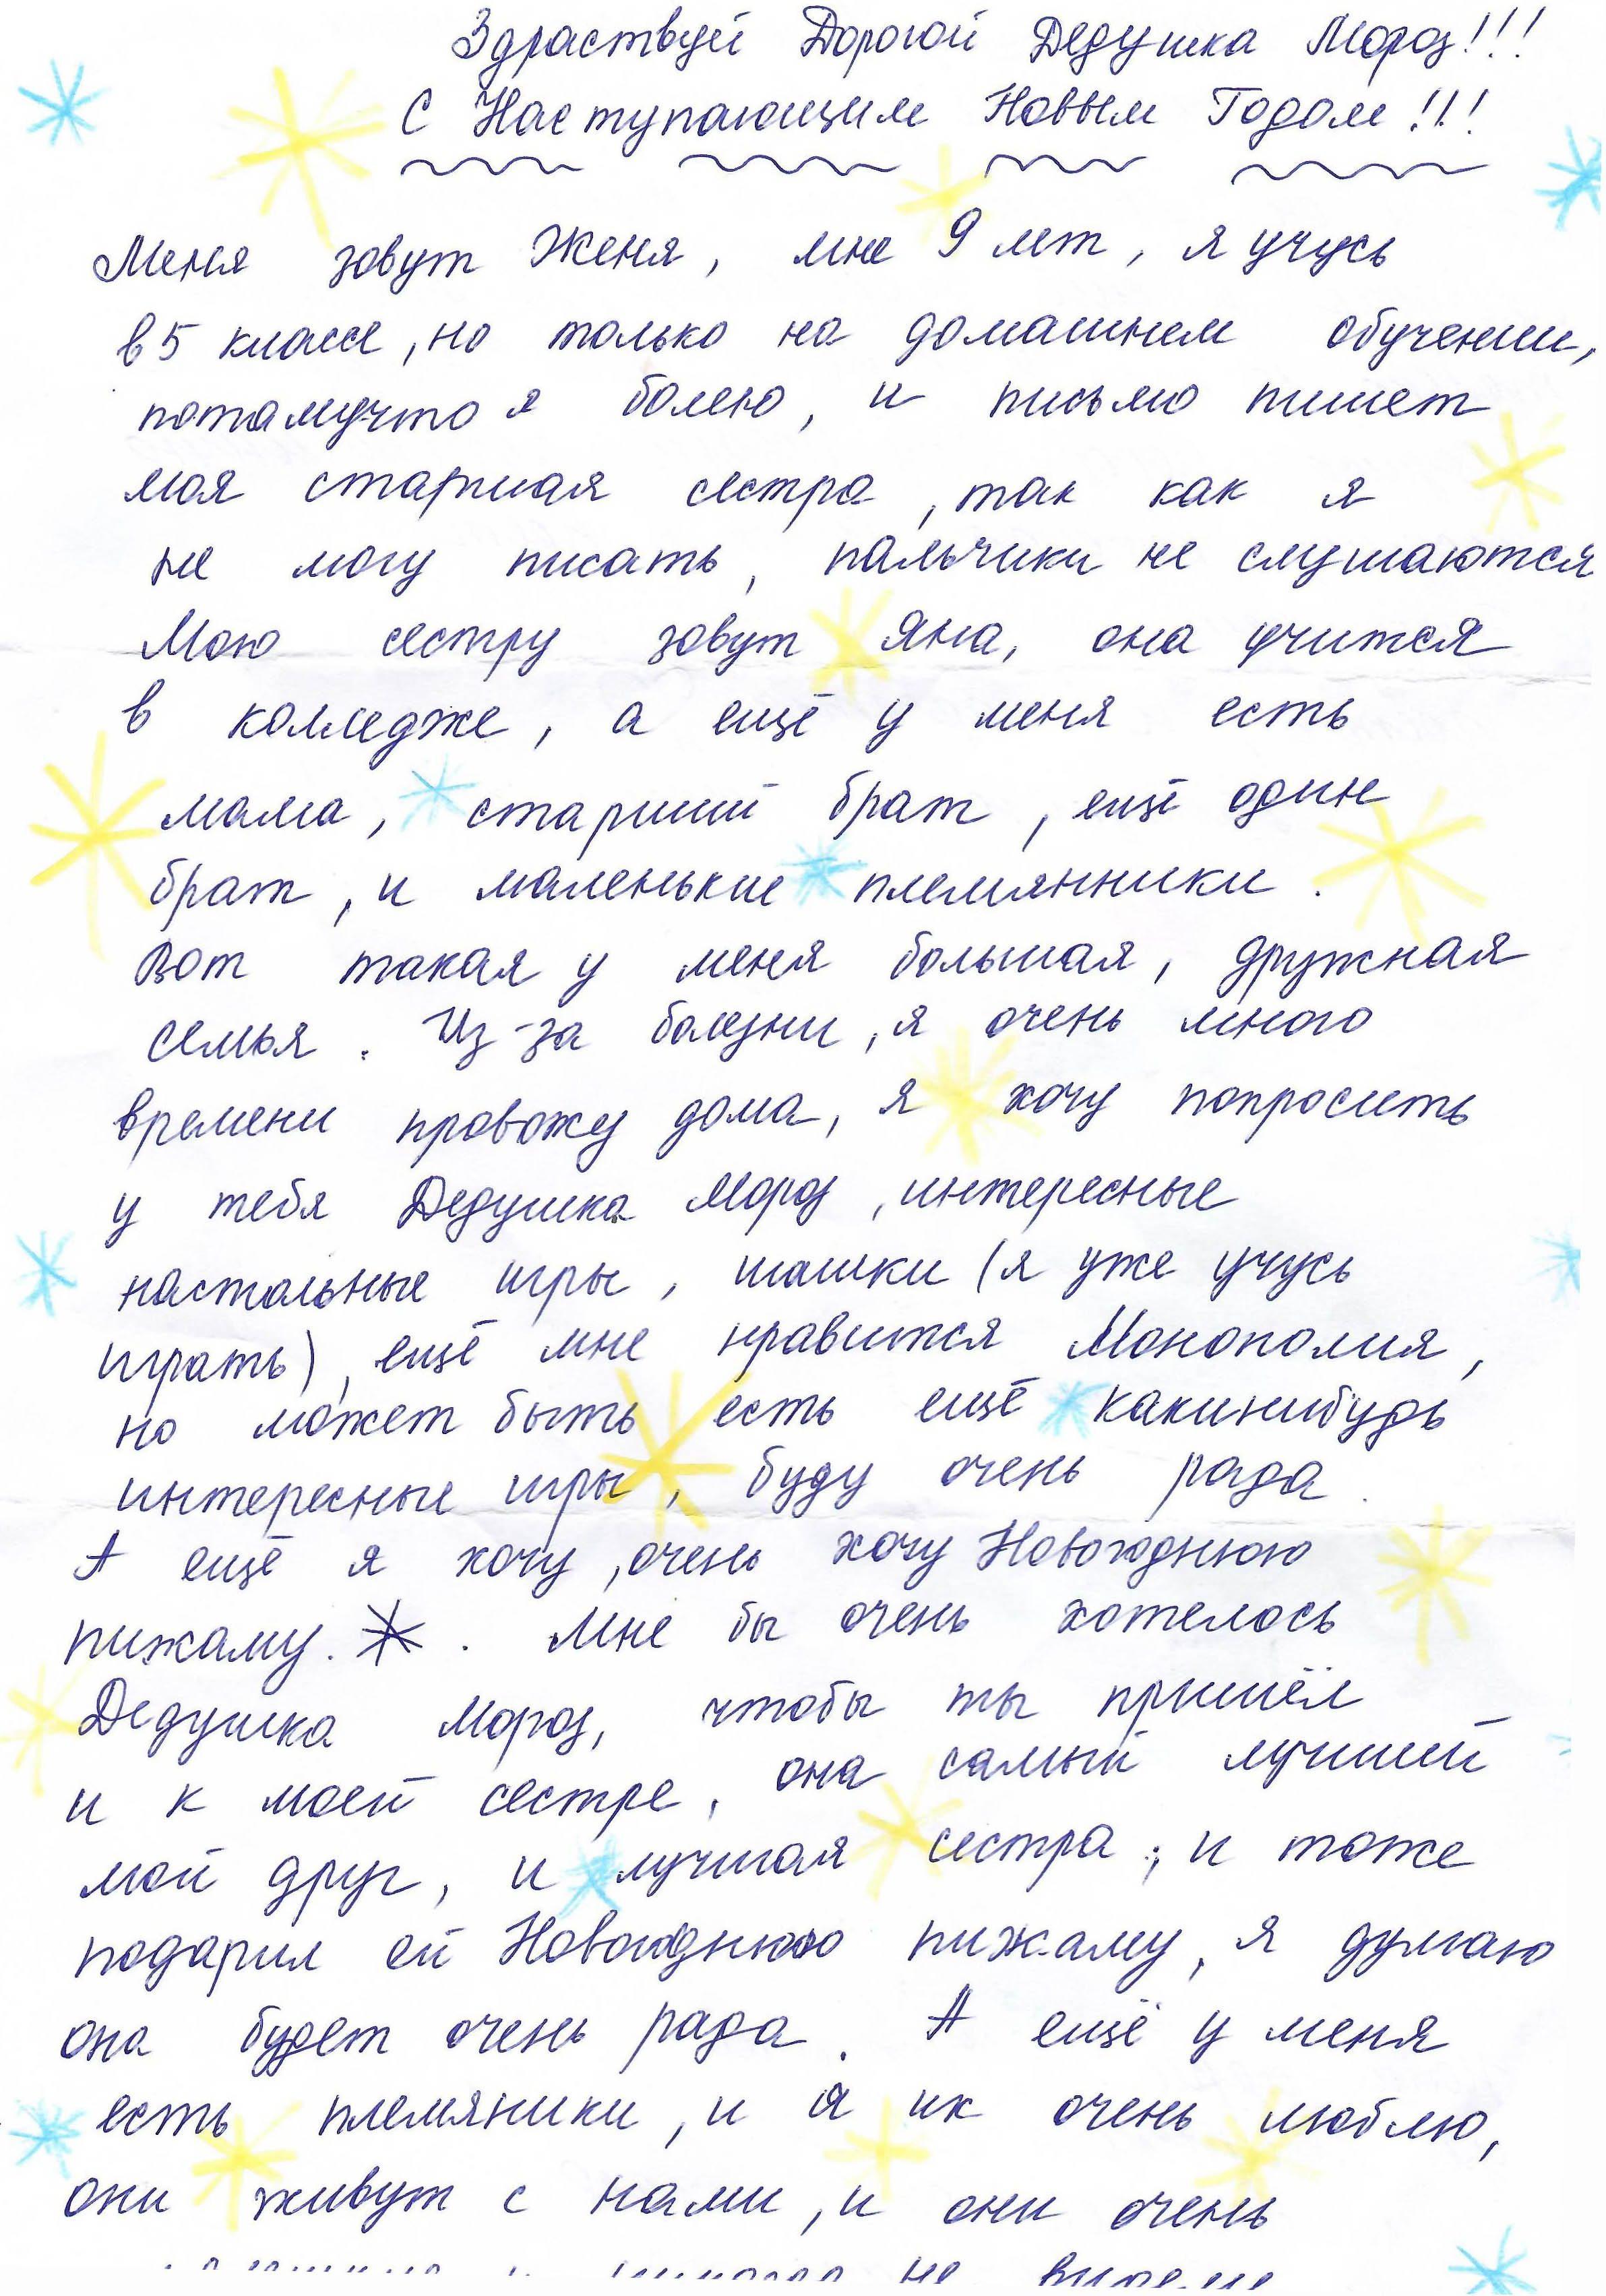 Здраствуй Дорогой Дедушка Мороз!!!
С Наступающим Новым Годом!!!
Меня зовут Женя, мне 9 лет, я учусь
в 5 классе, но только на домашнем обучении,
потамучто я болею, и письмо пишет
моя старшая сестра, так как я
не могу писать, пальчики не слушаются
Мою сестру зовут Яна, она учится
в колледже, а ещё у меня есть
мама, старший брат, ещё один
брат, и маленькие племянники.
Вот такая у меня большая, дружная
семья. Из-за болезни, я очень много
времени провожу дома, я хочу попросить
у тебя Дедушка Мороз, интересные
настольные игры, шашки (я уже учусь
играть), ещё мне нравится Монополия,
но может быть есть ещё какинибудь
интересные игры, буду очень рада.
А ещё я хочу, очень хочу Новогоднюю
пижаму. . Мне бы очень хотелось
Дедушка Мороз, чтобы ты пришёл
и к моей сестре, она самый лучший
мой друг, и лучшая сестра, и тоже
подарил ей Новогоднюю пижаму, я думаю
она будет очень рада. А ещё у меня
есть племяники, и я их очень люблю,
они живут с нами, и они очень
не